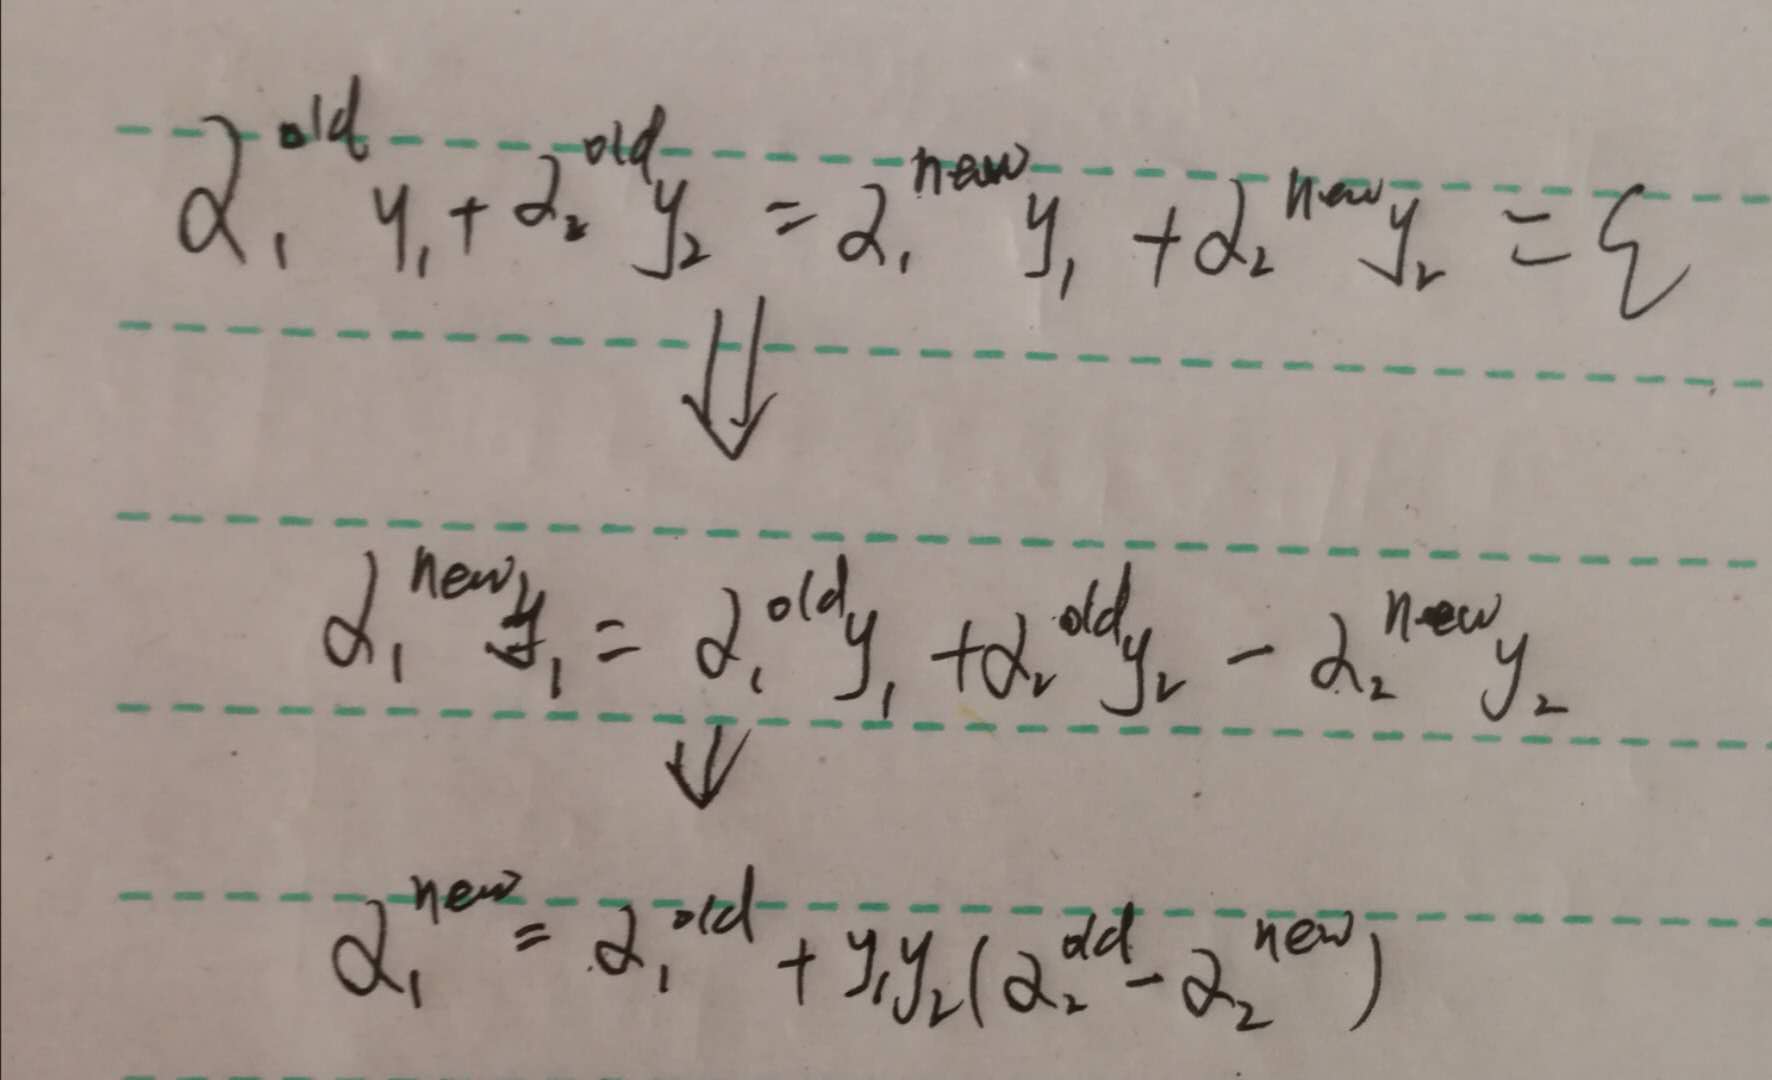 α₁^old y₁ + α₂^old y₂ = α₁^new y₁ + α₂^new y₂ = ξ
⇓
α₁^new y₁ = α₁^old y₁ + α₂^old y₂ − α₂^new y₂
⇓
α₁^new = α₁^old + y₁y₂(α₂^old − α₂^new)